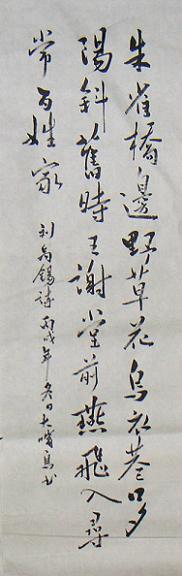 朱雀橋邊野草花烏衣巷口夕
陽斜舊時王謝堂前燕飛入尋
常百姓家
劉禹錫詩丙戌年冬日大嘴鳥书